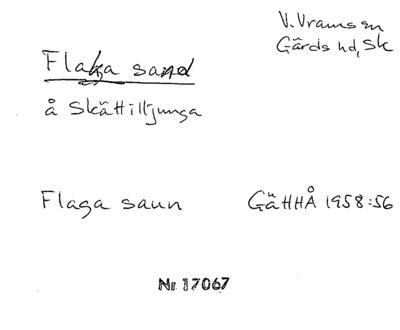 V. Vramsen
Gärds hd, Sk
Flaga sand
å Skättilljunga
Flaga saun
GäHHÅ 1958:56
Nr 17067